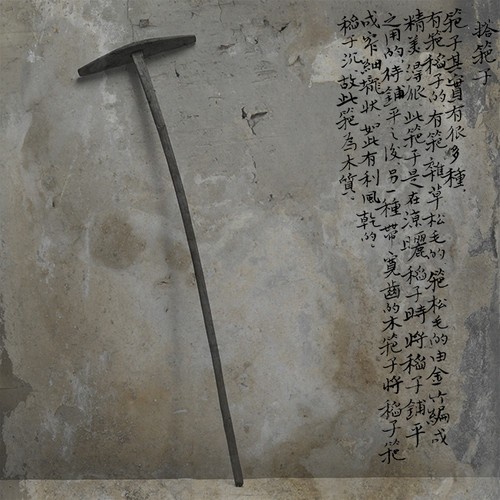 搭筢子
筢子其實有很多種、
有筢稻子的有筢雜草松毛的筢松毛的由金竹編成
精美得很此筢子是在涼曬稻子時將稻子鋪平
之用的待鋪平之後另一種帶寬齒的木筢子將稻子筢
成窄細壠狀如此有利風乾的、
稻子沉故此筢為木質、